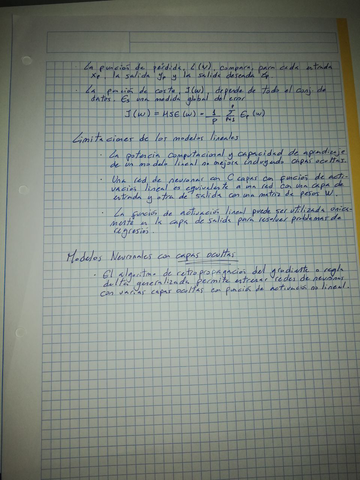 · La función de pérdida, L(w), compara, para cada entrada
xp la salida yp y la salida deseada
· La función de coste, J(w), depende de todo el conj. de
datos. Es una medida global del error
J(w) = MSE(w) = 1/P Σ Ep(w)
Limitaciones de los modelos lineales
· La potencia computacional y capacidad de aprendizaje
de un modelo lineal no mejora incluyendo capas ocultas.
· Una red de neuronas con C capas con función de acti-
vación lineal es equivalente a una red con una capa de
entrada y otra de salida con una matriz de pesos W.
· La función de activación lineal puede ser utilizada unica-
mente en la capa de salida para resolver problemas de
regresión.
Modelos Neuronales con capas ocultas
· El algoritmo de retropropagación del gradiente o regla
delta generalizada permite entrenar redes de neuronas
con varias capas ocultas en función de activación no lineal.